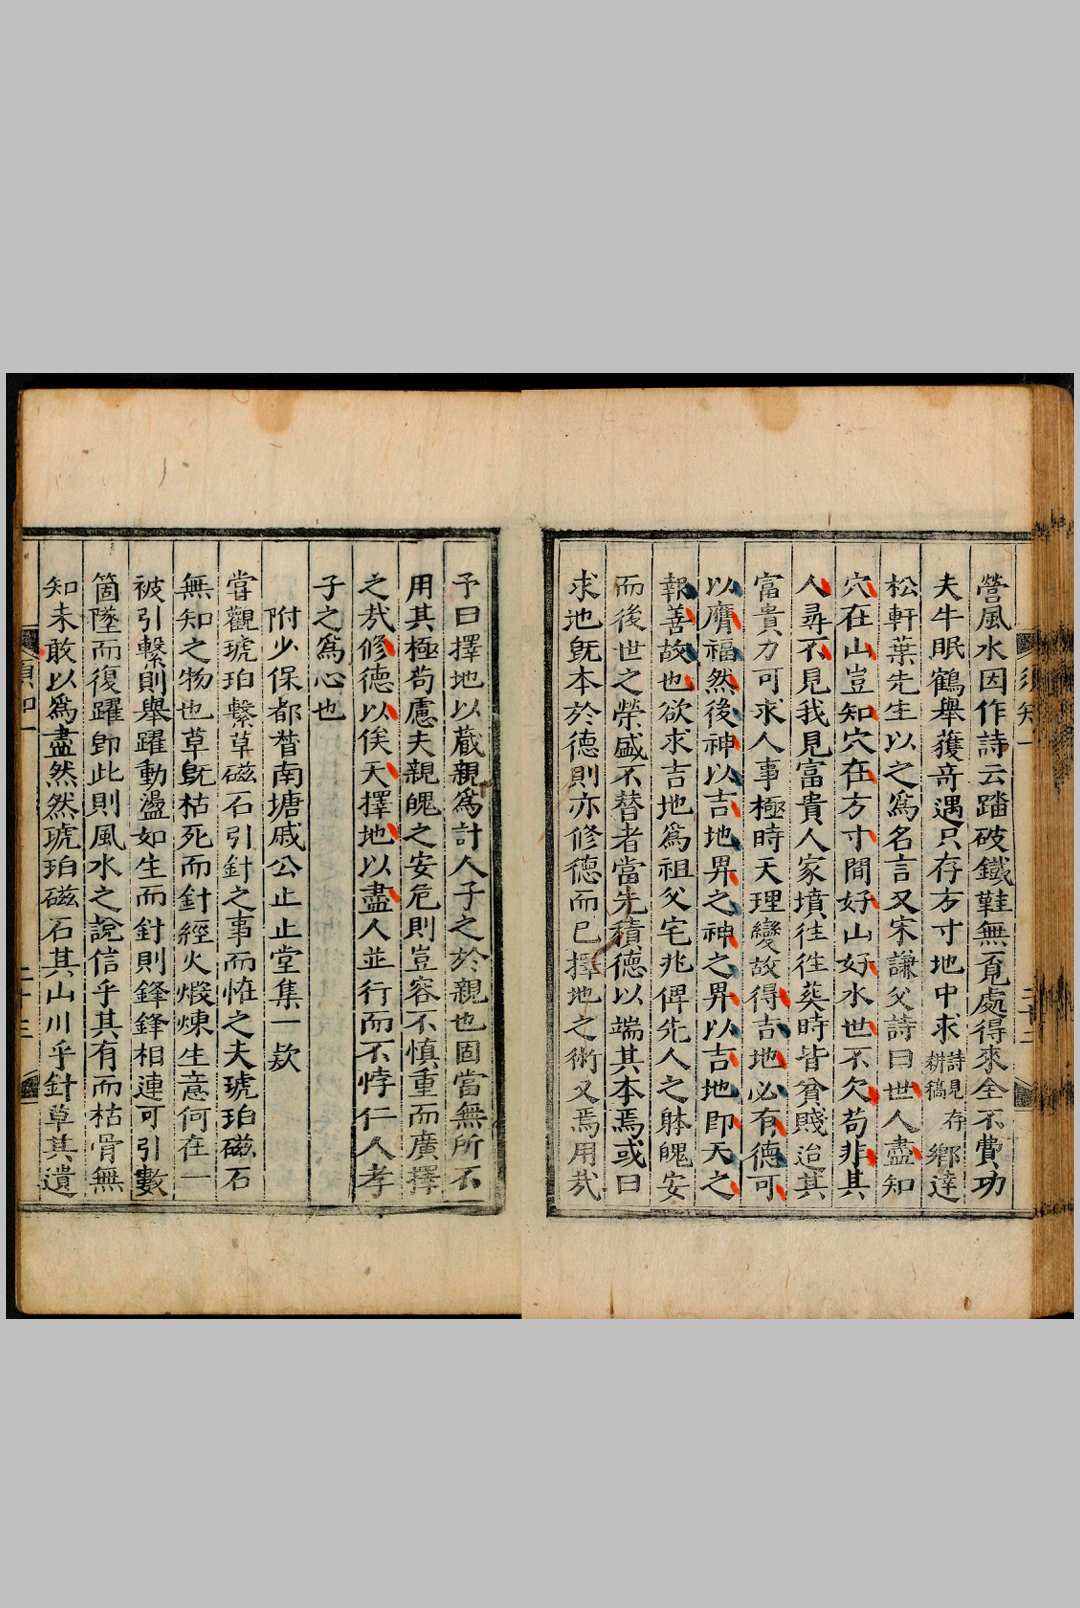 須知一
二十二
營風水因作詩云踏破鐵鞋無覓處得來全不費功
夫牛眠鶴舉獲奇遇只存方寸地中求詩見存耕稿鄉達
松軒葉先生以之爲名言又宋謙父詩曰世人盡知
穴在山豈知穴在方寸間好山好水世不欠苟非其
人尋不見我見富貴人家墳往往葬時皆貧賤迨其
富貴力可求人事極時天理變故得吉地必有德可
以膺福然後神以吉地畀之神之畀以吉地即天之
報善故也欲求吉地爲祖父宅兆俾先人之躰魄安
而後世之榮盛不替者當先積德以端其本焉或曰
求地旣本於德則亦修德而已擇地之術又焉用㢤
予曰擇地以藏親爲計人子之於親也固當無所不
用其極苟慮夫親魄之安危則豈容不慎重而廣擇
之㢤修德以俟天擇地以盡人並行而不悖仁人孝
子之爲心也
附少保都督南塘戚公止止堂集一欵
嘗觀琥珀繫草磁石引針之事而恠之夫琥珀磁石
無知之物也草旣枯死而針經火煅煉生意何在一
被引繫則舉躍動盪如生而針則鋒鋒相連可引數
箇墜而復躍即此則風水之說信乎其有而枯骨無
知未敢以爲盡然然琥珀磁石其山川乎針草其遺
須知一
二十三